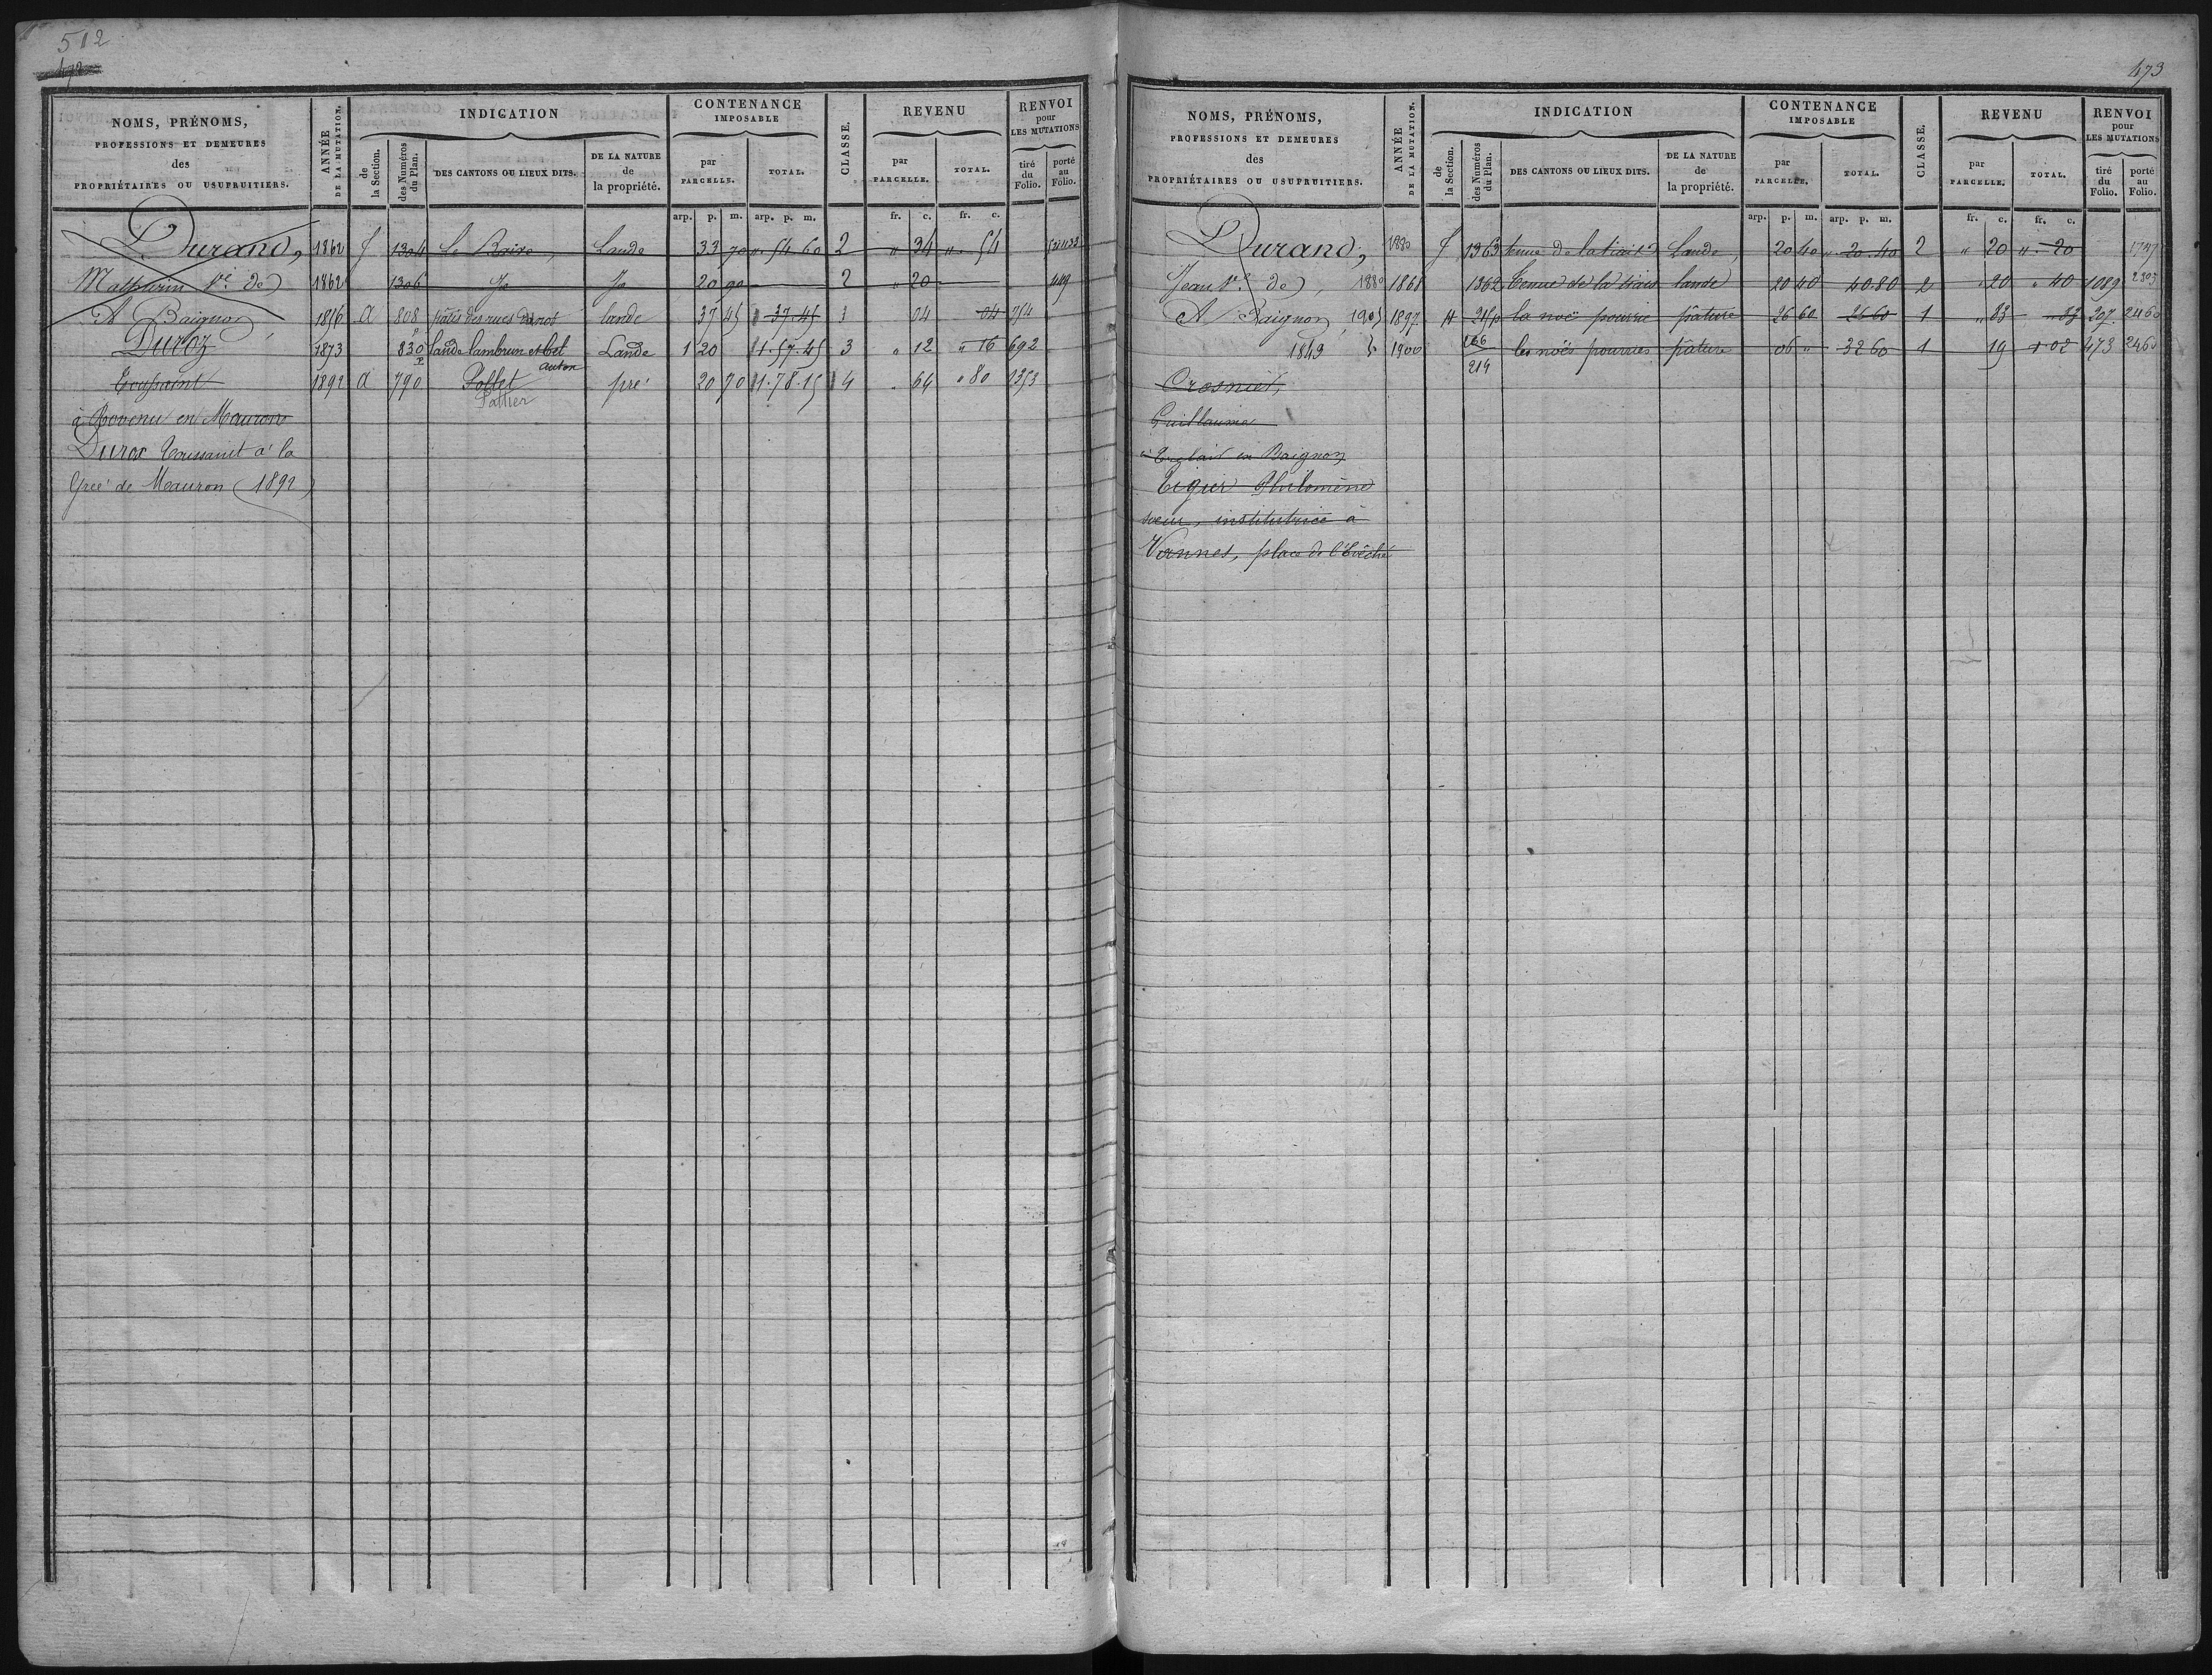 512
472
NOMS, PRÉNOMS,
PROFESSIONS ET DEMEURES
des
PROPRIÉTAIRES OU USUFRUITIERS.
ANNÉE
DE LA MUTATION.
INDICATION
de
la Section.
des Numéros
du Plan.
DES CANTONS OU LIEUX DITS.
DE LA NATURE
de
la propriété.
CONTENANCE
IMPOSABLE
par
PARCELLE.
TOTAL.
CLASSE.
REVENU
par
PARCELLE.
TOTAL.
RENVOI
pour
LES MUTATIONS
tiré
du
Folio.
porté
au
Folio.
arp. p. m. arp. p. m. fr. c. fr. c.
Durand, 1862 f 1304 Le Boixo, Lande 33 70 " 54 60 2 " 34 " 54
Mathurin Ve de 1862 1306 Jo Jo 20 90 2 " 20 449
A Baignon, 1856 a 808 pâtis des rues lande 37 45 37.45 1 04 04 754
Duroz 1873 830 p lande lambrun et bel Lande 1 20 1.57.45 3 " 12 " 16 692
auton
Toussaint 1892 a 790 Pollet pré 20 70 1.78.15 4 " 64 " 80 1353
Pattier
à en Mauron
Duros Toussaint à la
Grée de Mauron (1892)
473
NOMS, PRÉNOMS,
PROFESSIONS ET DEMEURES
des
PROPRIÉTAIRES OU USUFRUITIERS.
ANNÉE
DE LA MUTATION.
INDICATION
de
la Section.
des Numéros
du Plan.
DES CANTONS OU LIEUX DITS.
DE LA NATURE
de
la propriété.
CONTENANCE
IMPOSABLE
par
PARCELLE.
TOTAL.
CLASSE.
REVENU
par
PARCELLE.
TOTAL.
RENVOI
pour
LES MUTATIONS
tiré
du
Folio.
porté
au
Folio.
arp. p. m. arp. p. m. fr. c. fr. c.
Durand, 1880 f 1363 tenue de la Lande, 20 40 " 20.40 2 " 20 " 20 1747
Jean Ve de, 1880 1868 1362 Tenue de la lande 20 40 40.80 2 " 20 " 40 1089 2303
A Baignon, 1905 1897 H 215 p la noë pourrie pâture 26 60 26 60 1 " 83 " 83 207 2460
1849 1900 les noës pourries pâture 06 " 32 60 1 19 1 02 473 2460
214
Crosnier,
Guillaume
à en Baignon
Tigier Philomène
soeur, institutrice à
Vannes, place de l'Evêché